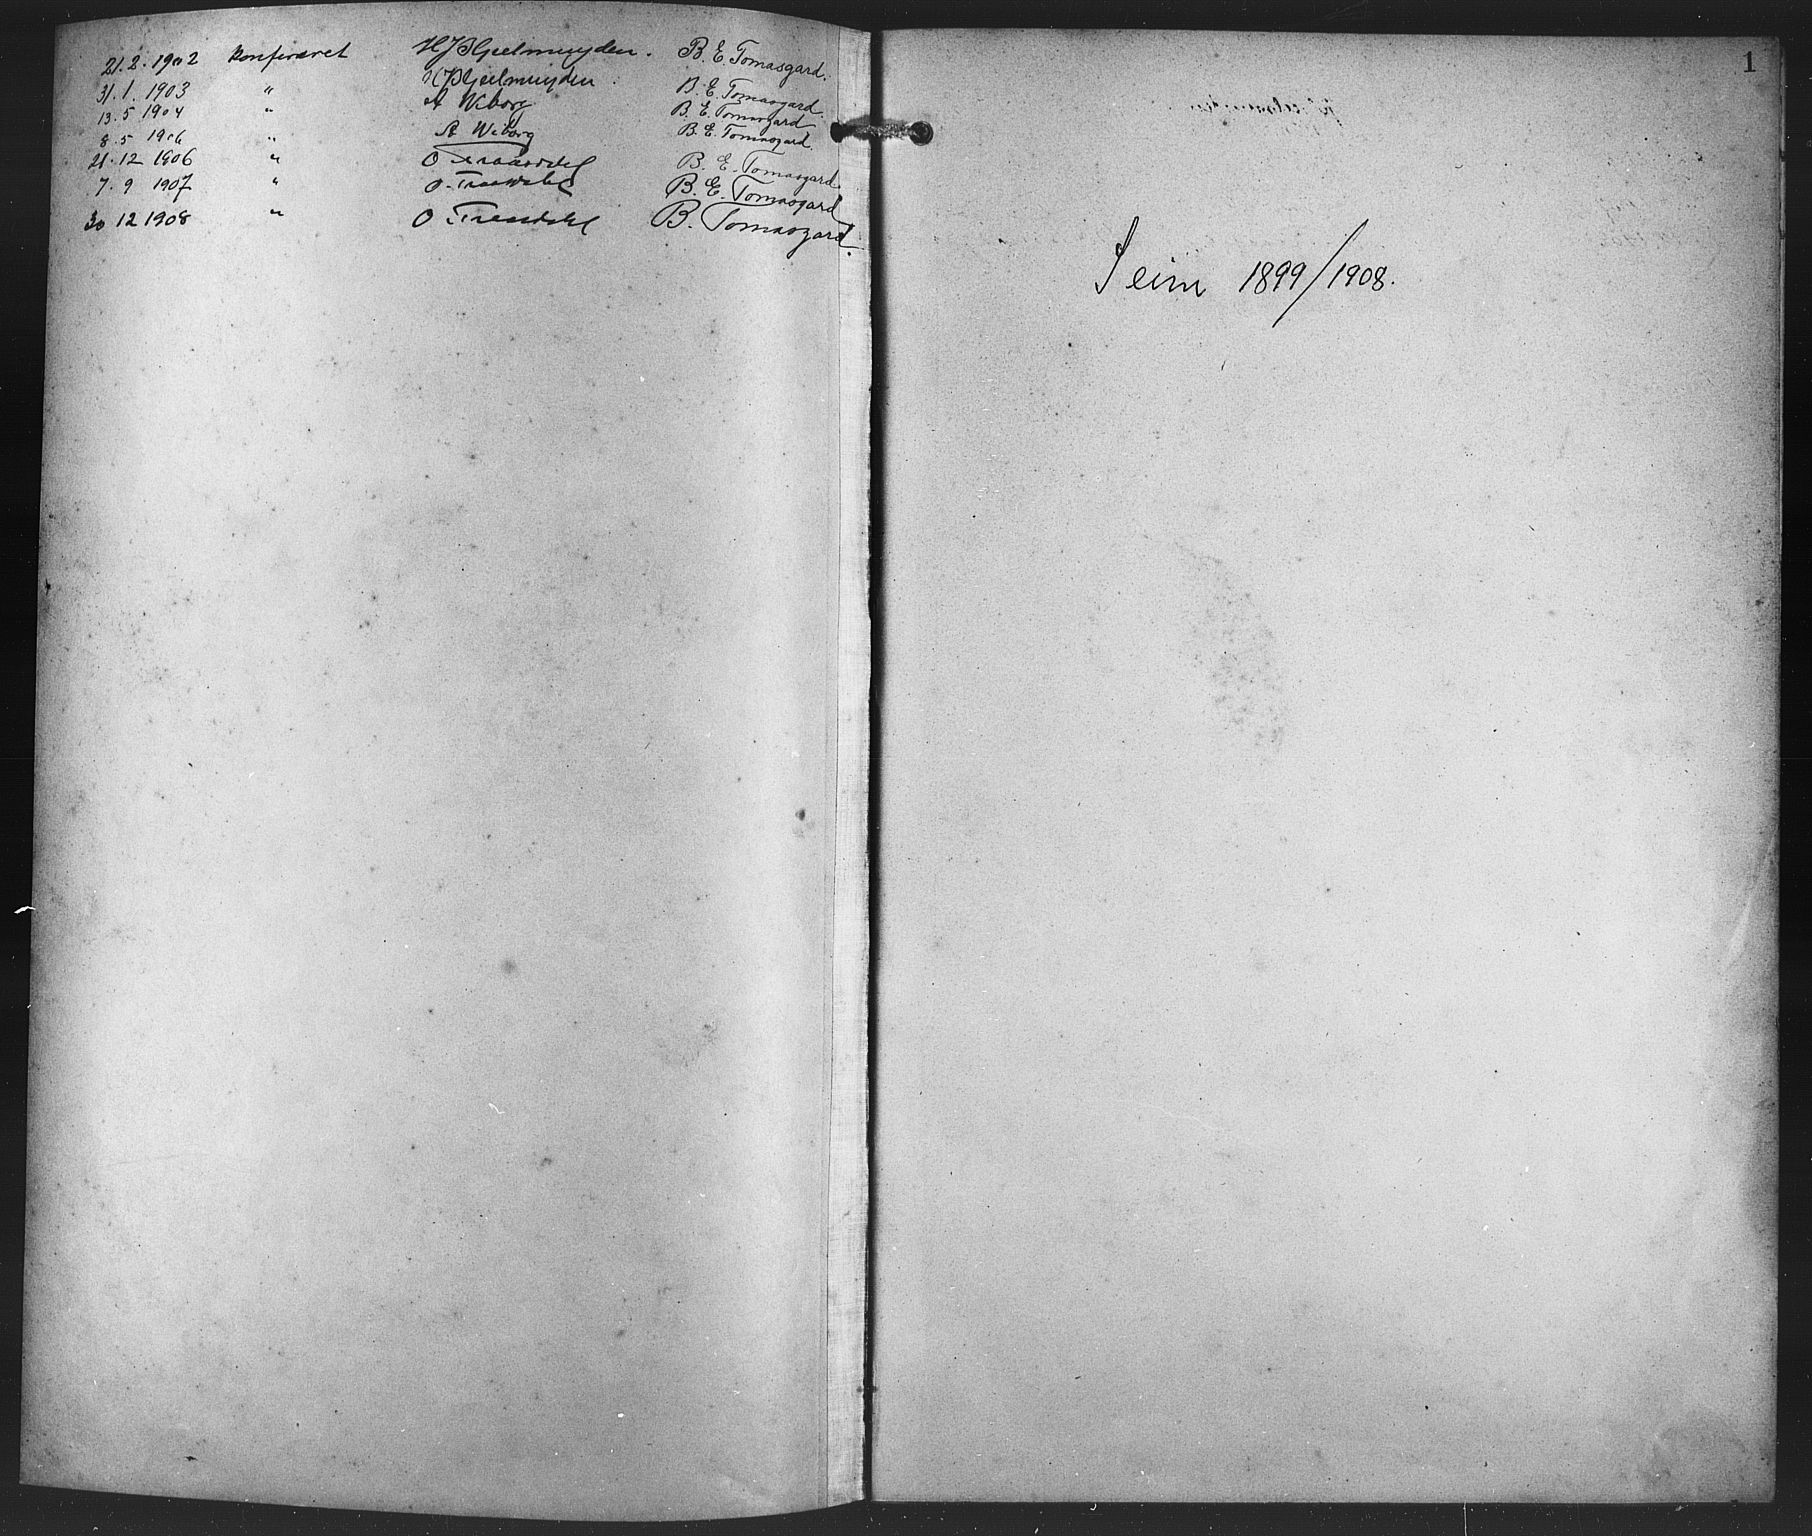 21.2.1902 Konfereret HJGjelmuyden. B.E.Tomasgard.
31.1.1903 " HJGjelmuyden. B.E.Tomasgard
13.5 1904 " A Wiborg B.E.Tomasgard
8.5 1906 " A Wiborg B.E.Tomasgard.
21.12 1906 " O B.E.Tomasgard
7.9 1907 " O. B.E.Tomasgard
30 12 1908 " O B. Tomasgard.
1
Seim 1899/1908.